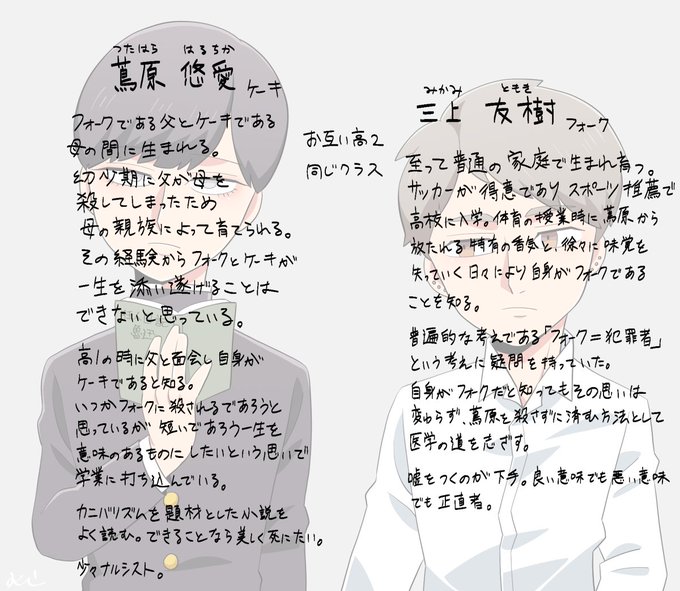 つたはら はるちか
蔦原 悠愛 ケーキ
フォークである父とケーキである
母の間に生まれる。
幼少期に父が母を
殺してしまったため
母の親族によって育てられる。
その経験からフォークとケーキが
一生を添い遂げることは
できないと思っている。
高1の時に父と面会し自身が
ケーキであると知る。
いつかフォークに殺されるであろうと
思っているが短いであろう一生を
意味のあるものにしたいという思いで
学業に打ち込んでいる。
カニバリズムを題材とした小説を
よく読む。できることなら美しく死にたい。
少々ナルシスト。
お互い高2
同じクラス
みかみ ともき
三上 友樹 フォーク
至って普通の家庭で生まれ育つ。
サッカーが得意でありスポーツ推薦で
高校に入学。体育の授業時に蔦原から
放たれる特有の香気と、徐々に味覚を
失っていく日々により自身がフォークである
ことを知る。
普遍的な考えである「フォーク=犯罪者」
という考えに疑問を持っていた。
自身がフォークだと知ってもその思いは
変わらず、蔦原を殺さずに済む方法として
医学の道を志ざす。
嘘をつくのが下手。良い意味でも悪い意味
でも正直者。